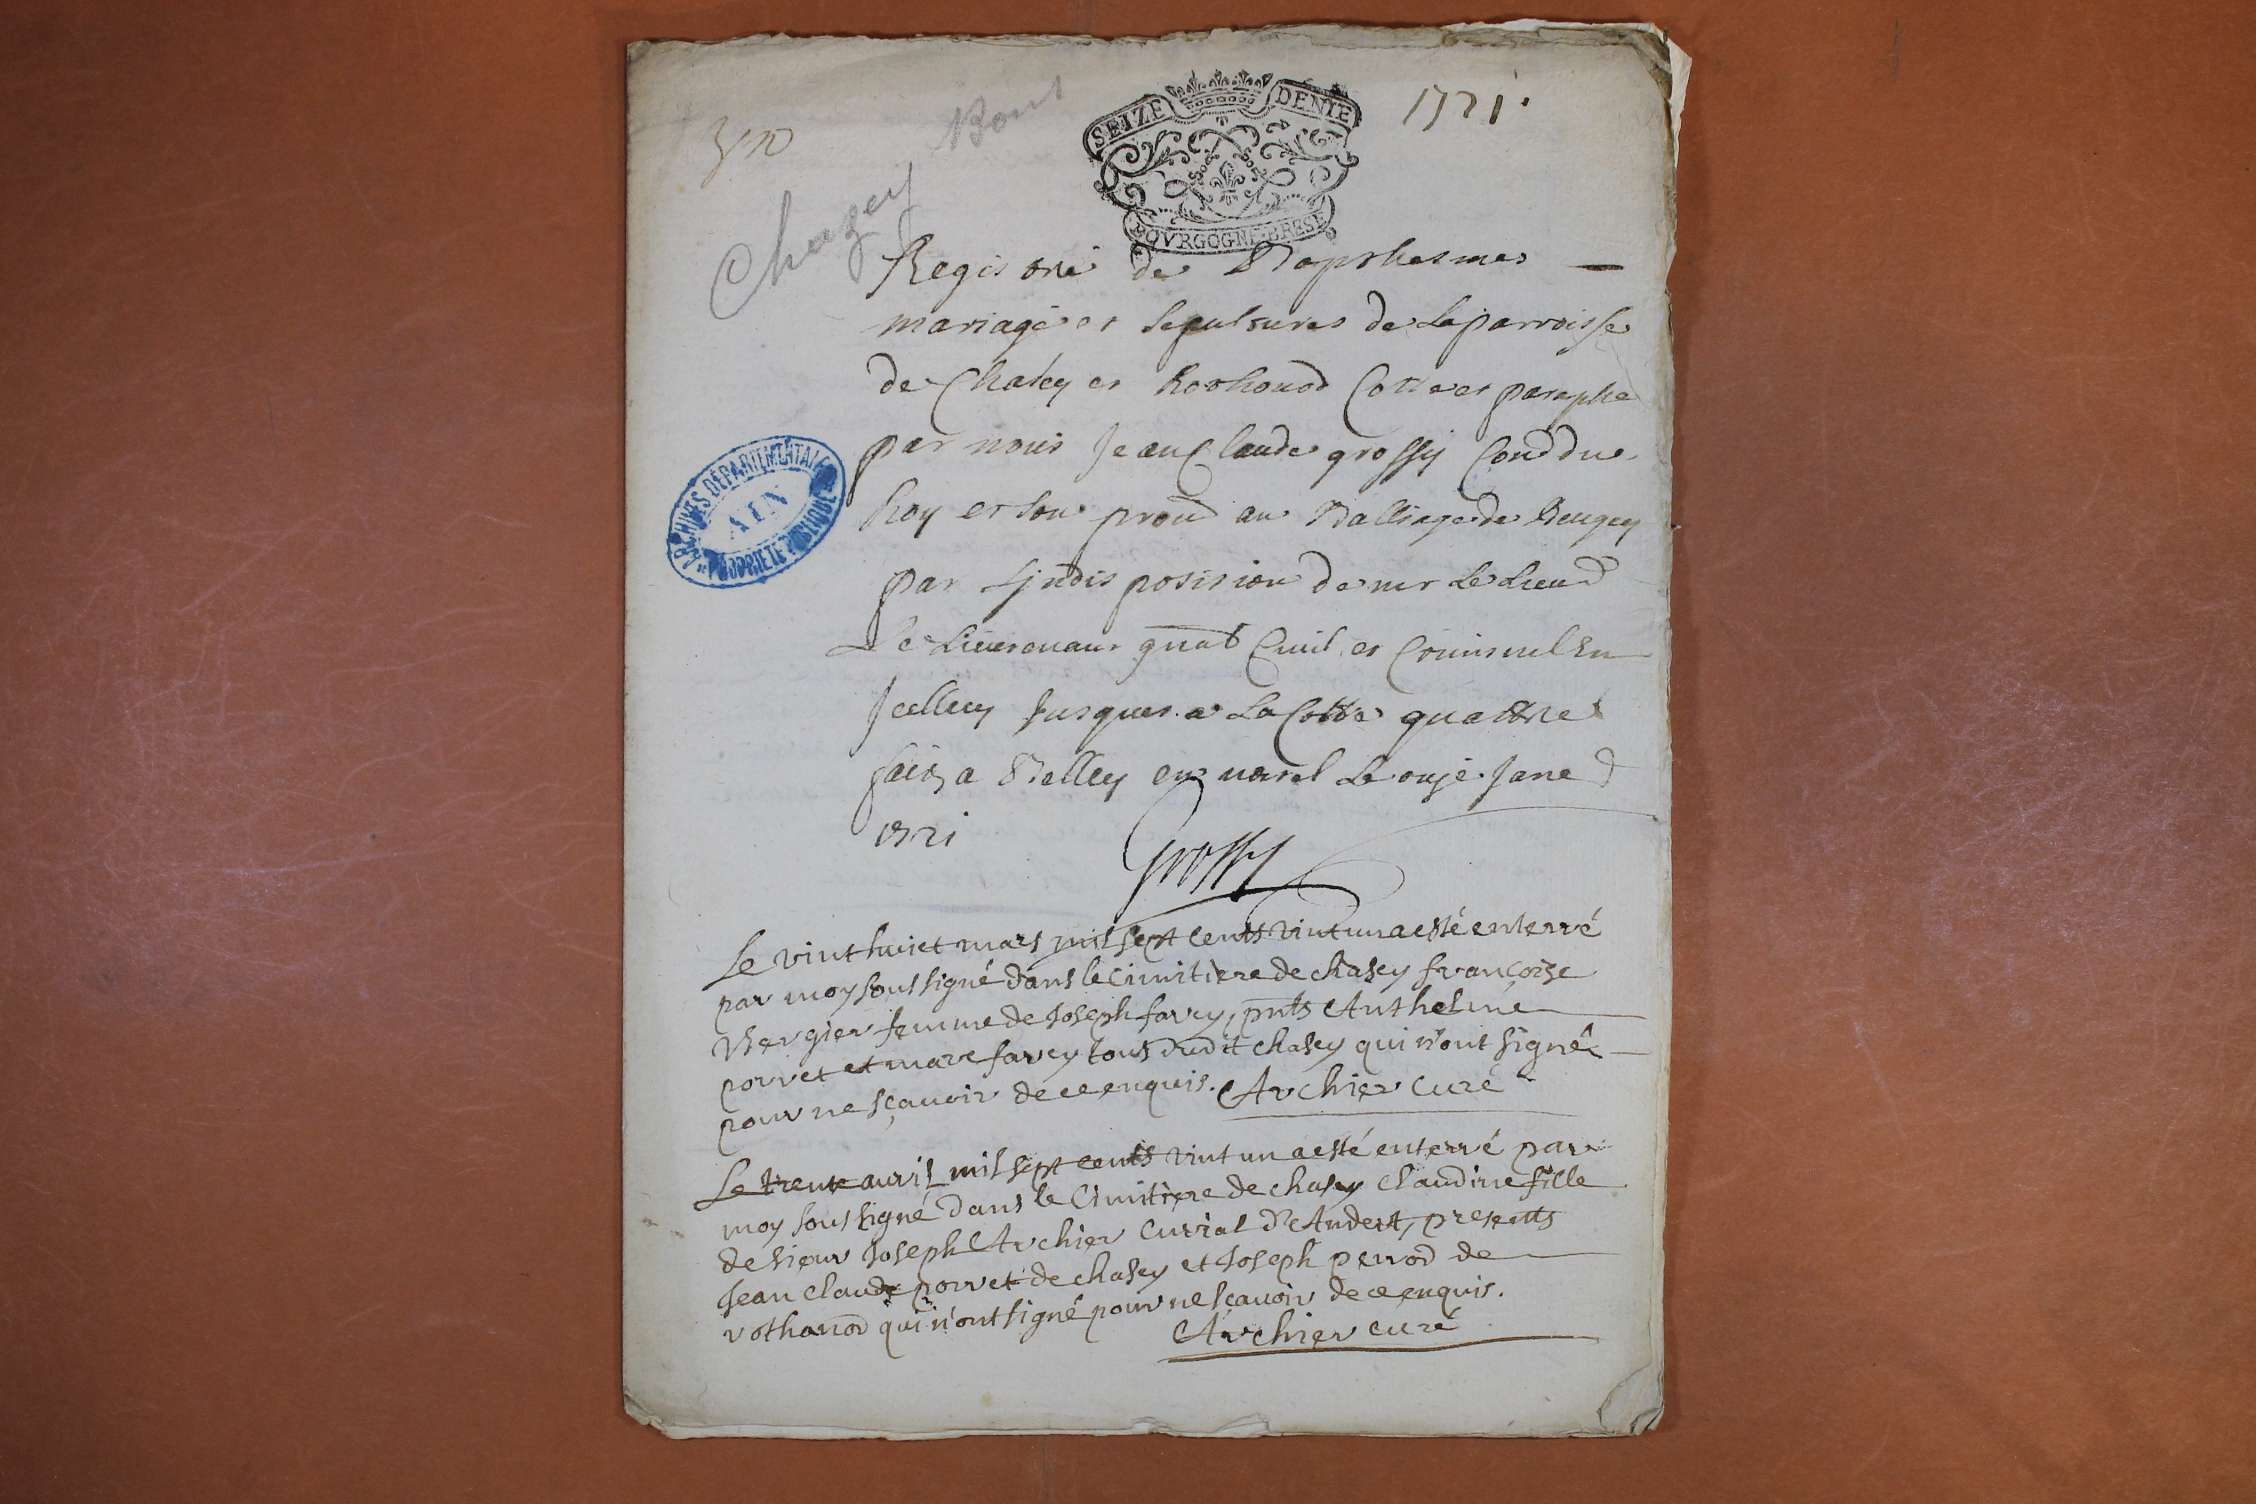 1721
Bons
Chazey
SEIZE DENIE
BOVRGOGNE BRESE
ARCHIVES DÉPARTEMENTALES
AIN
PROPRIÉTÉ PUBLIQUE
Registre de Bapthesmes
mariage et sepultures de La parroisse
de Chasey et Rothonod Cotte et paraphe
par nous Jean Claude grossy Cons.r du
Roy et son proc.r au Balliage de Beugey
par Lindisposition de mr Le Lieut
Le Lieutenant gnal Ciuil et Criminel En
Jcelluy Jusques a La Cotte quattre
fait a Belley en nostre hostel Le onze Janr
1721
Grossy
Le vint huict mars mil sept cents vint un a esté enterré
par moy soussigné dans le cimitiere de chasey françoise
Bergier femme de Joseph favey, pnts Anthelme
porret et marc favey tous dudit chasey qui n'ont signé
pour ne sçavoir de ce enquis. Archier curé
Le trente auril mil sept cents vint un a esté enterré par
moy soussigné dans le Cimitiere de chasey Claudine fille
de sieur Joseph Archier curial d'Andert, presents
Jean claude porret de chasey et Joseph perrod de
rothonod qui n'ont signé pour ne sçavoir de ce enquis.
Archier curé